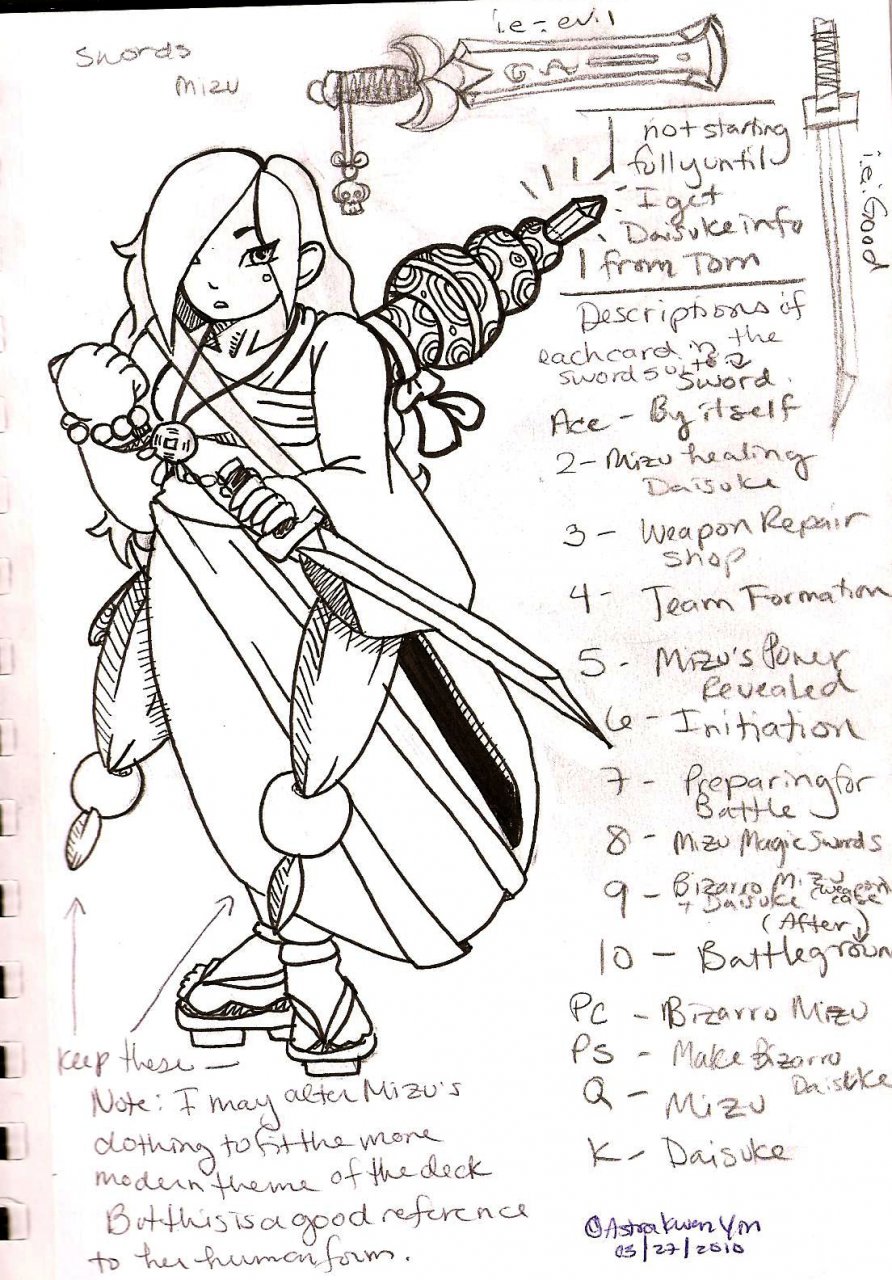 Swords
Mizu
i.e - evil
i.e: Good
not starting
fully until
I get
Daisuke info
from Tom
Descriptions of
each card in the
sword suit
Sword.
Ace - By itself
2 - Mizu healing
Daisuke
3 - Weapon Repair
Shop
4 - Team Formation
5 - Mizu's Power
Revealed
6 - Initiation
7 - Preparing for
Battle
8 - Mizu Magic Swords
9 - Bizarro Mizu
+ Daisuke (weapon
case
(After)
10 - Battleground
PC - Bizarro Mizu
PS - Make Bizarro
Daisuke
Q - Mizu
K - Daisuke
keep these -
Note: I may alter Mizu's
clothing to fit the more
modern theme of the deck
But this is a good reference
to her human form.
©Astra Kwen Yin
03/27/2010